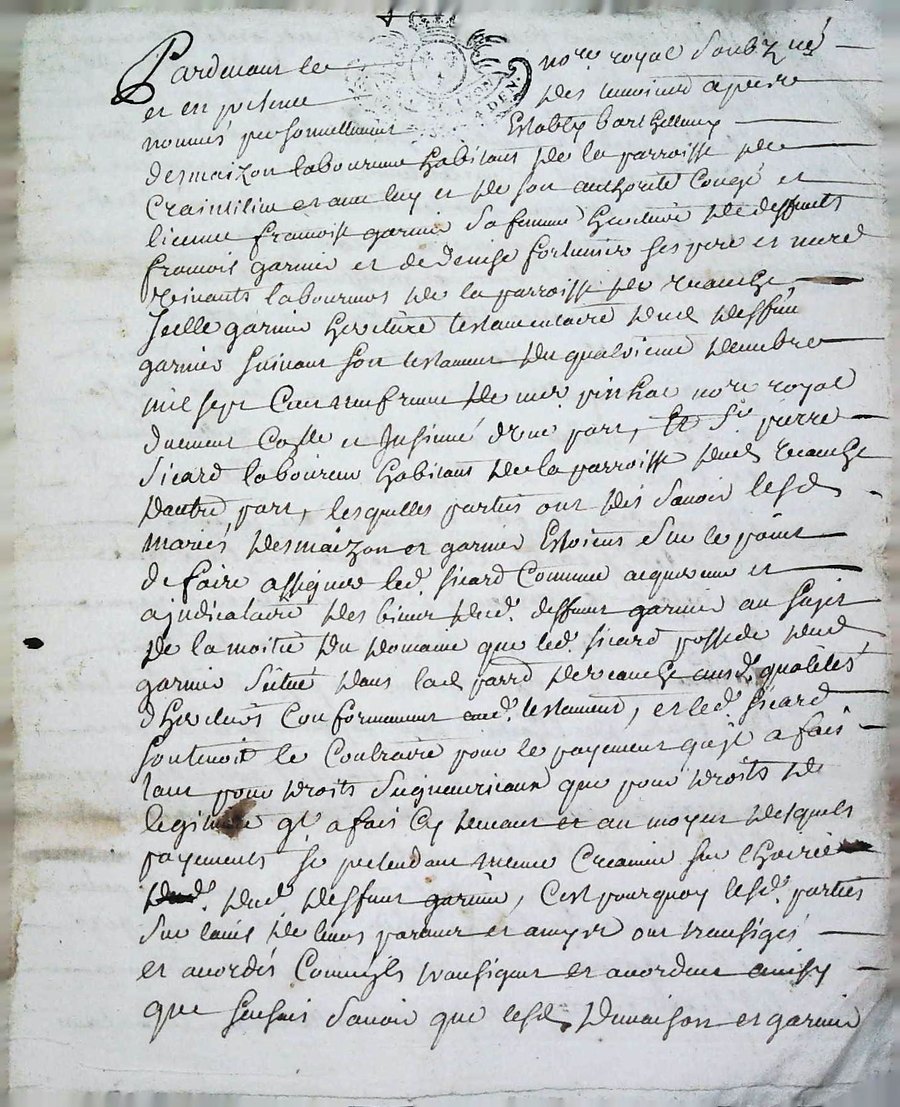 Pardevant le no.re royal soubz né
et en presence des temoins apres
nommés personnellement Estably barthellemy
desmaizon laboureur habitant de la parroisse de
Craintilliu et avec luy et de son authorité Congé et
licence francoise garnier sa femme heritiere de deffunts
francois garnier et de denise fortunier ses pere et mere
vivants laboureurs de la parroisse de veauche,
Icelle garnier heritiere testamentaire dud deffun
garnier suivant son testament du quatrieme decembre
mil sept Cent neuf recue de me pinhac no.re royal
duement Colle et Insinué d'une part, Et Sr pierre
Sicard laboureur habitant de la parroisse dud veauche
dautre part, lesquelles parties ont dit scavoir lesd
mariés desmaizon et garnier Estoient sur le point
de faire assigner led. Sicard Comme acquereur et
ajudicataire des biens dud. deffunt garnier au sujet
de la moitié du domaine que led. Sicard possede dud
garnier situé dans lad parr de veauche ausd. qualités
dheritiers Conformement aud. testament, et led. Sicard
soutenoit le Contraire pour le payement qu'il a fait
tant pour droits seigneuriaux que pour droits de
legitime ql a fait Cy devant et au moyen desquels
payements se pretendant mesme Creancier sur lhoirie
dud deffunt garnier, C'est pourquoy lesd. parties
sur lavis de leurs parents et amys ont transigés
et accordés Comme ils transigent et accordent ainsy
que sensuit scavoir que lesd. Demaison et garnier